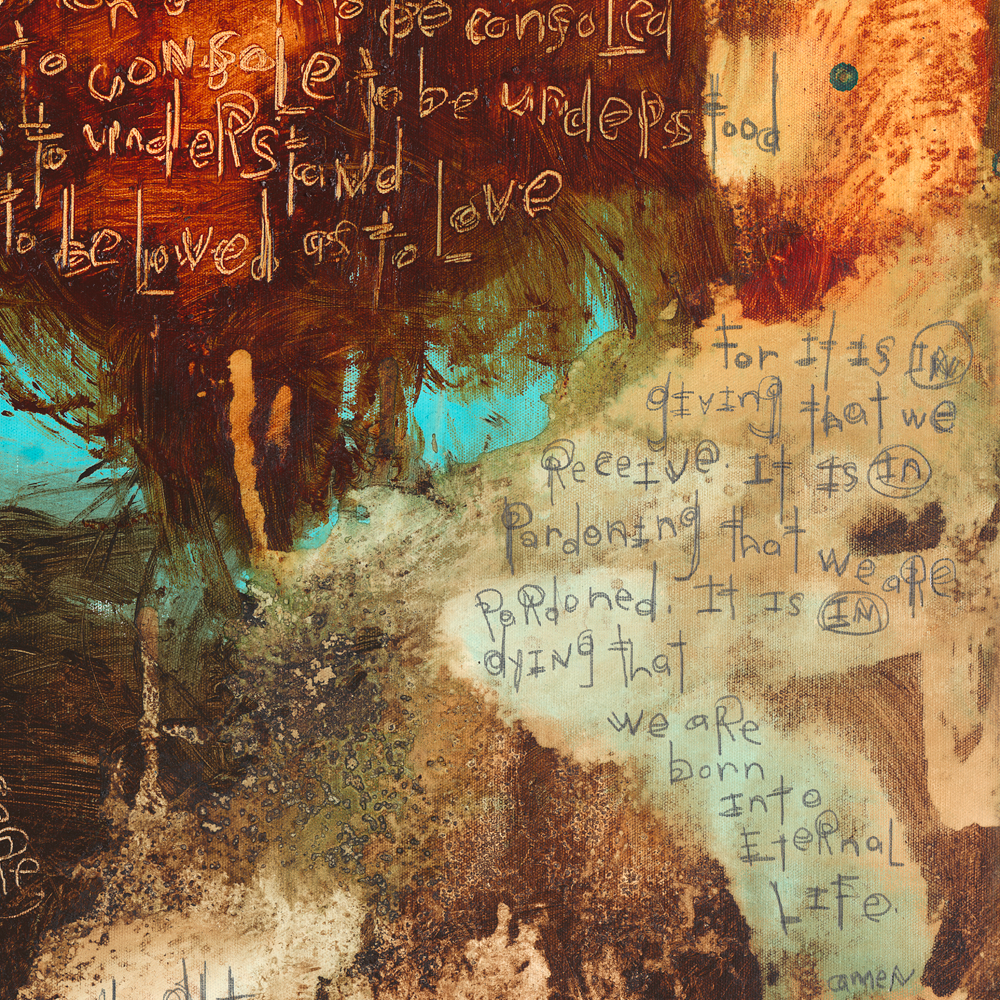 to be consoled
to console
to be understood
to understand
to be Loved as to Love
for it is IN
giving that we
Receive. It is In
Pardoning that we are
PaRdoned. It is IN
dyINg that
we aRe
born
Into
EteRnaL
LIFe.
amen